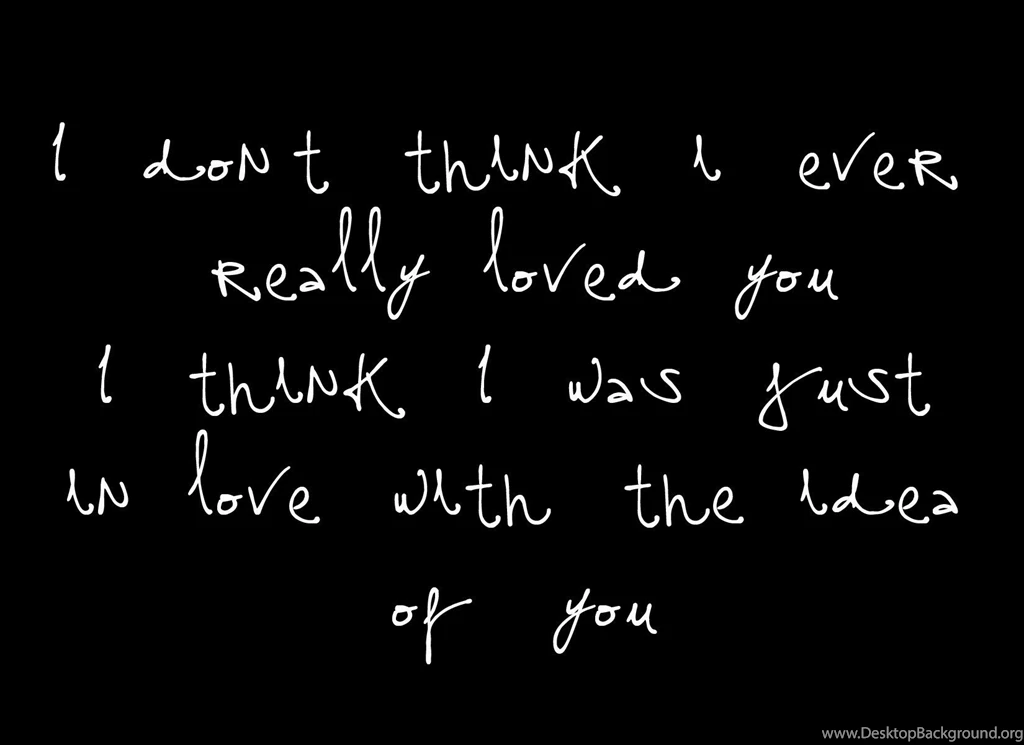 I don t think i ever
Really loved you
I think I was just
in love with the idea
of you
www.DesktopBackground.org